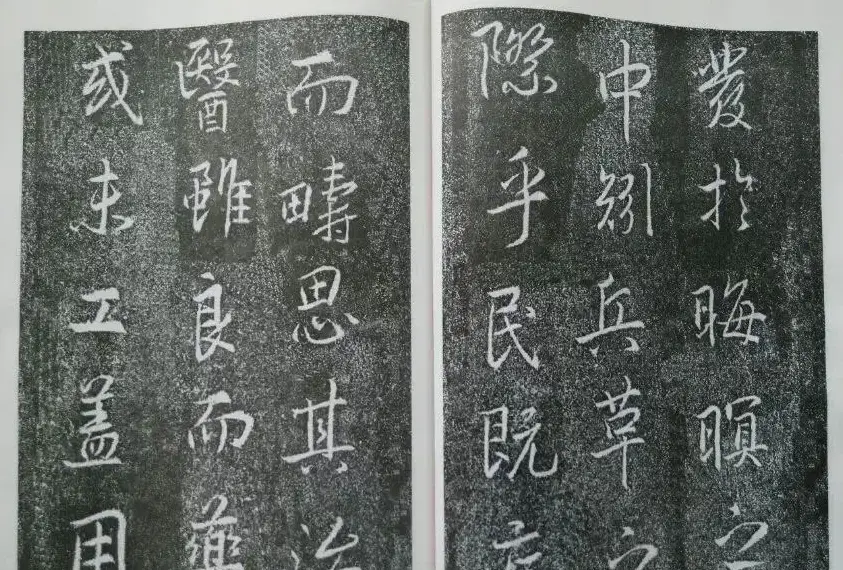 發於晦暝之
中矧兵草之
際乎民既
而疇思其治
醫雖良而藥
或未工盖用